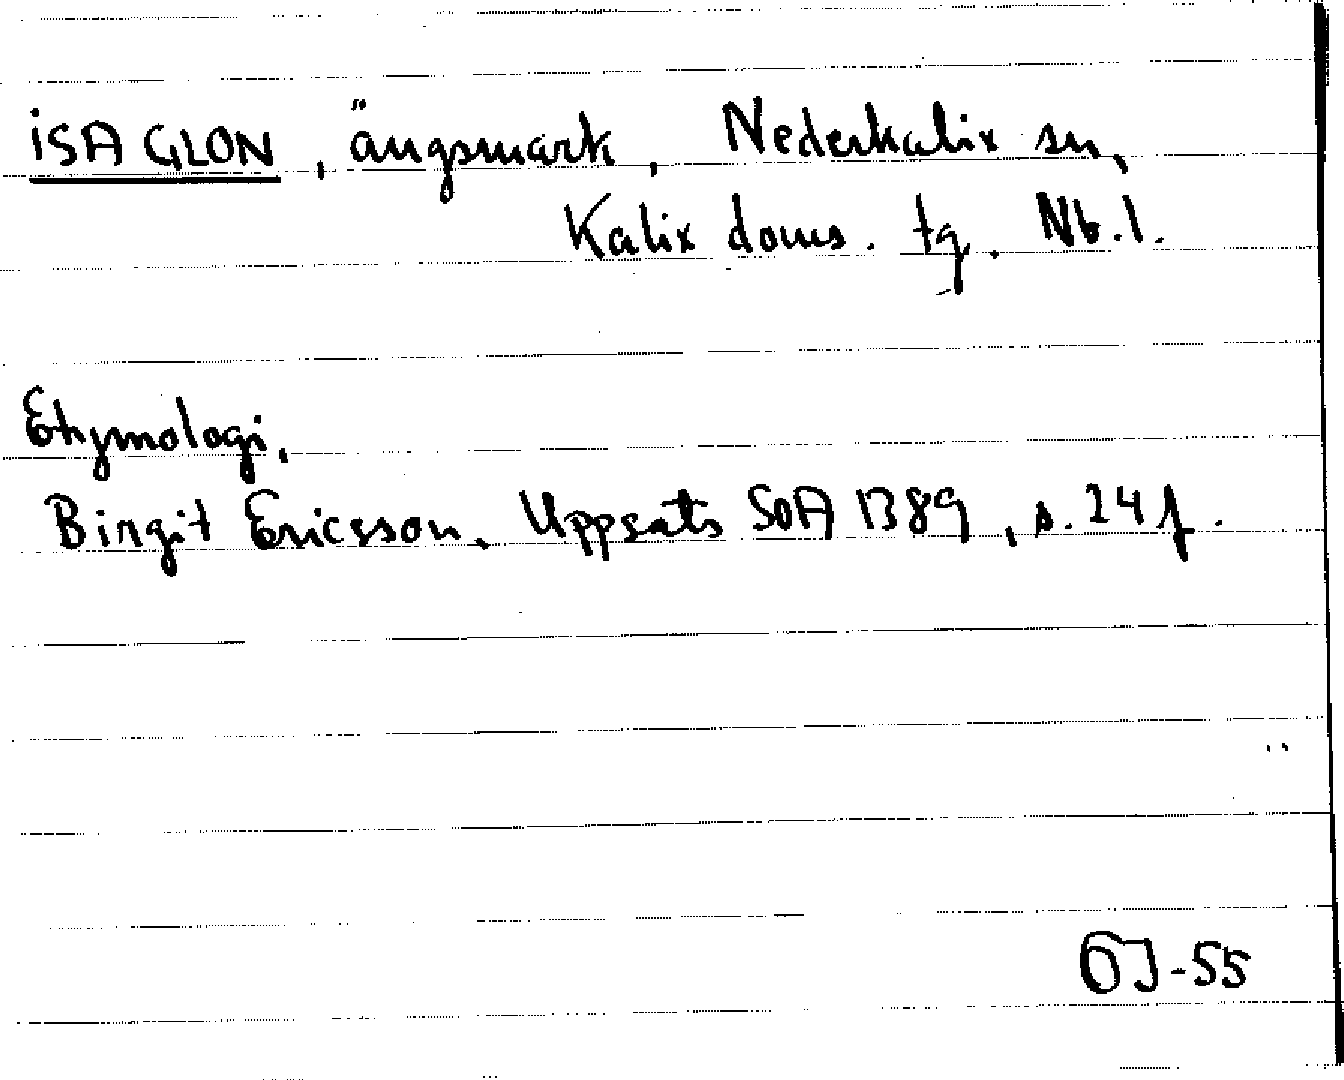 ISAGLON, ängsmark, Nederkalix sn,
Kalix doms. tg. Nb. l.
Etymologi.
Birgit Ericsson, Uppsats SOA 1389, s. 24 f.
GJ-55